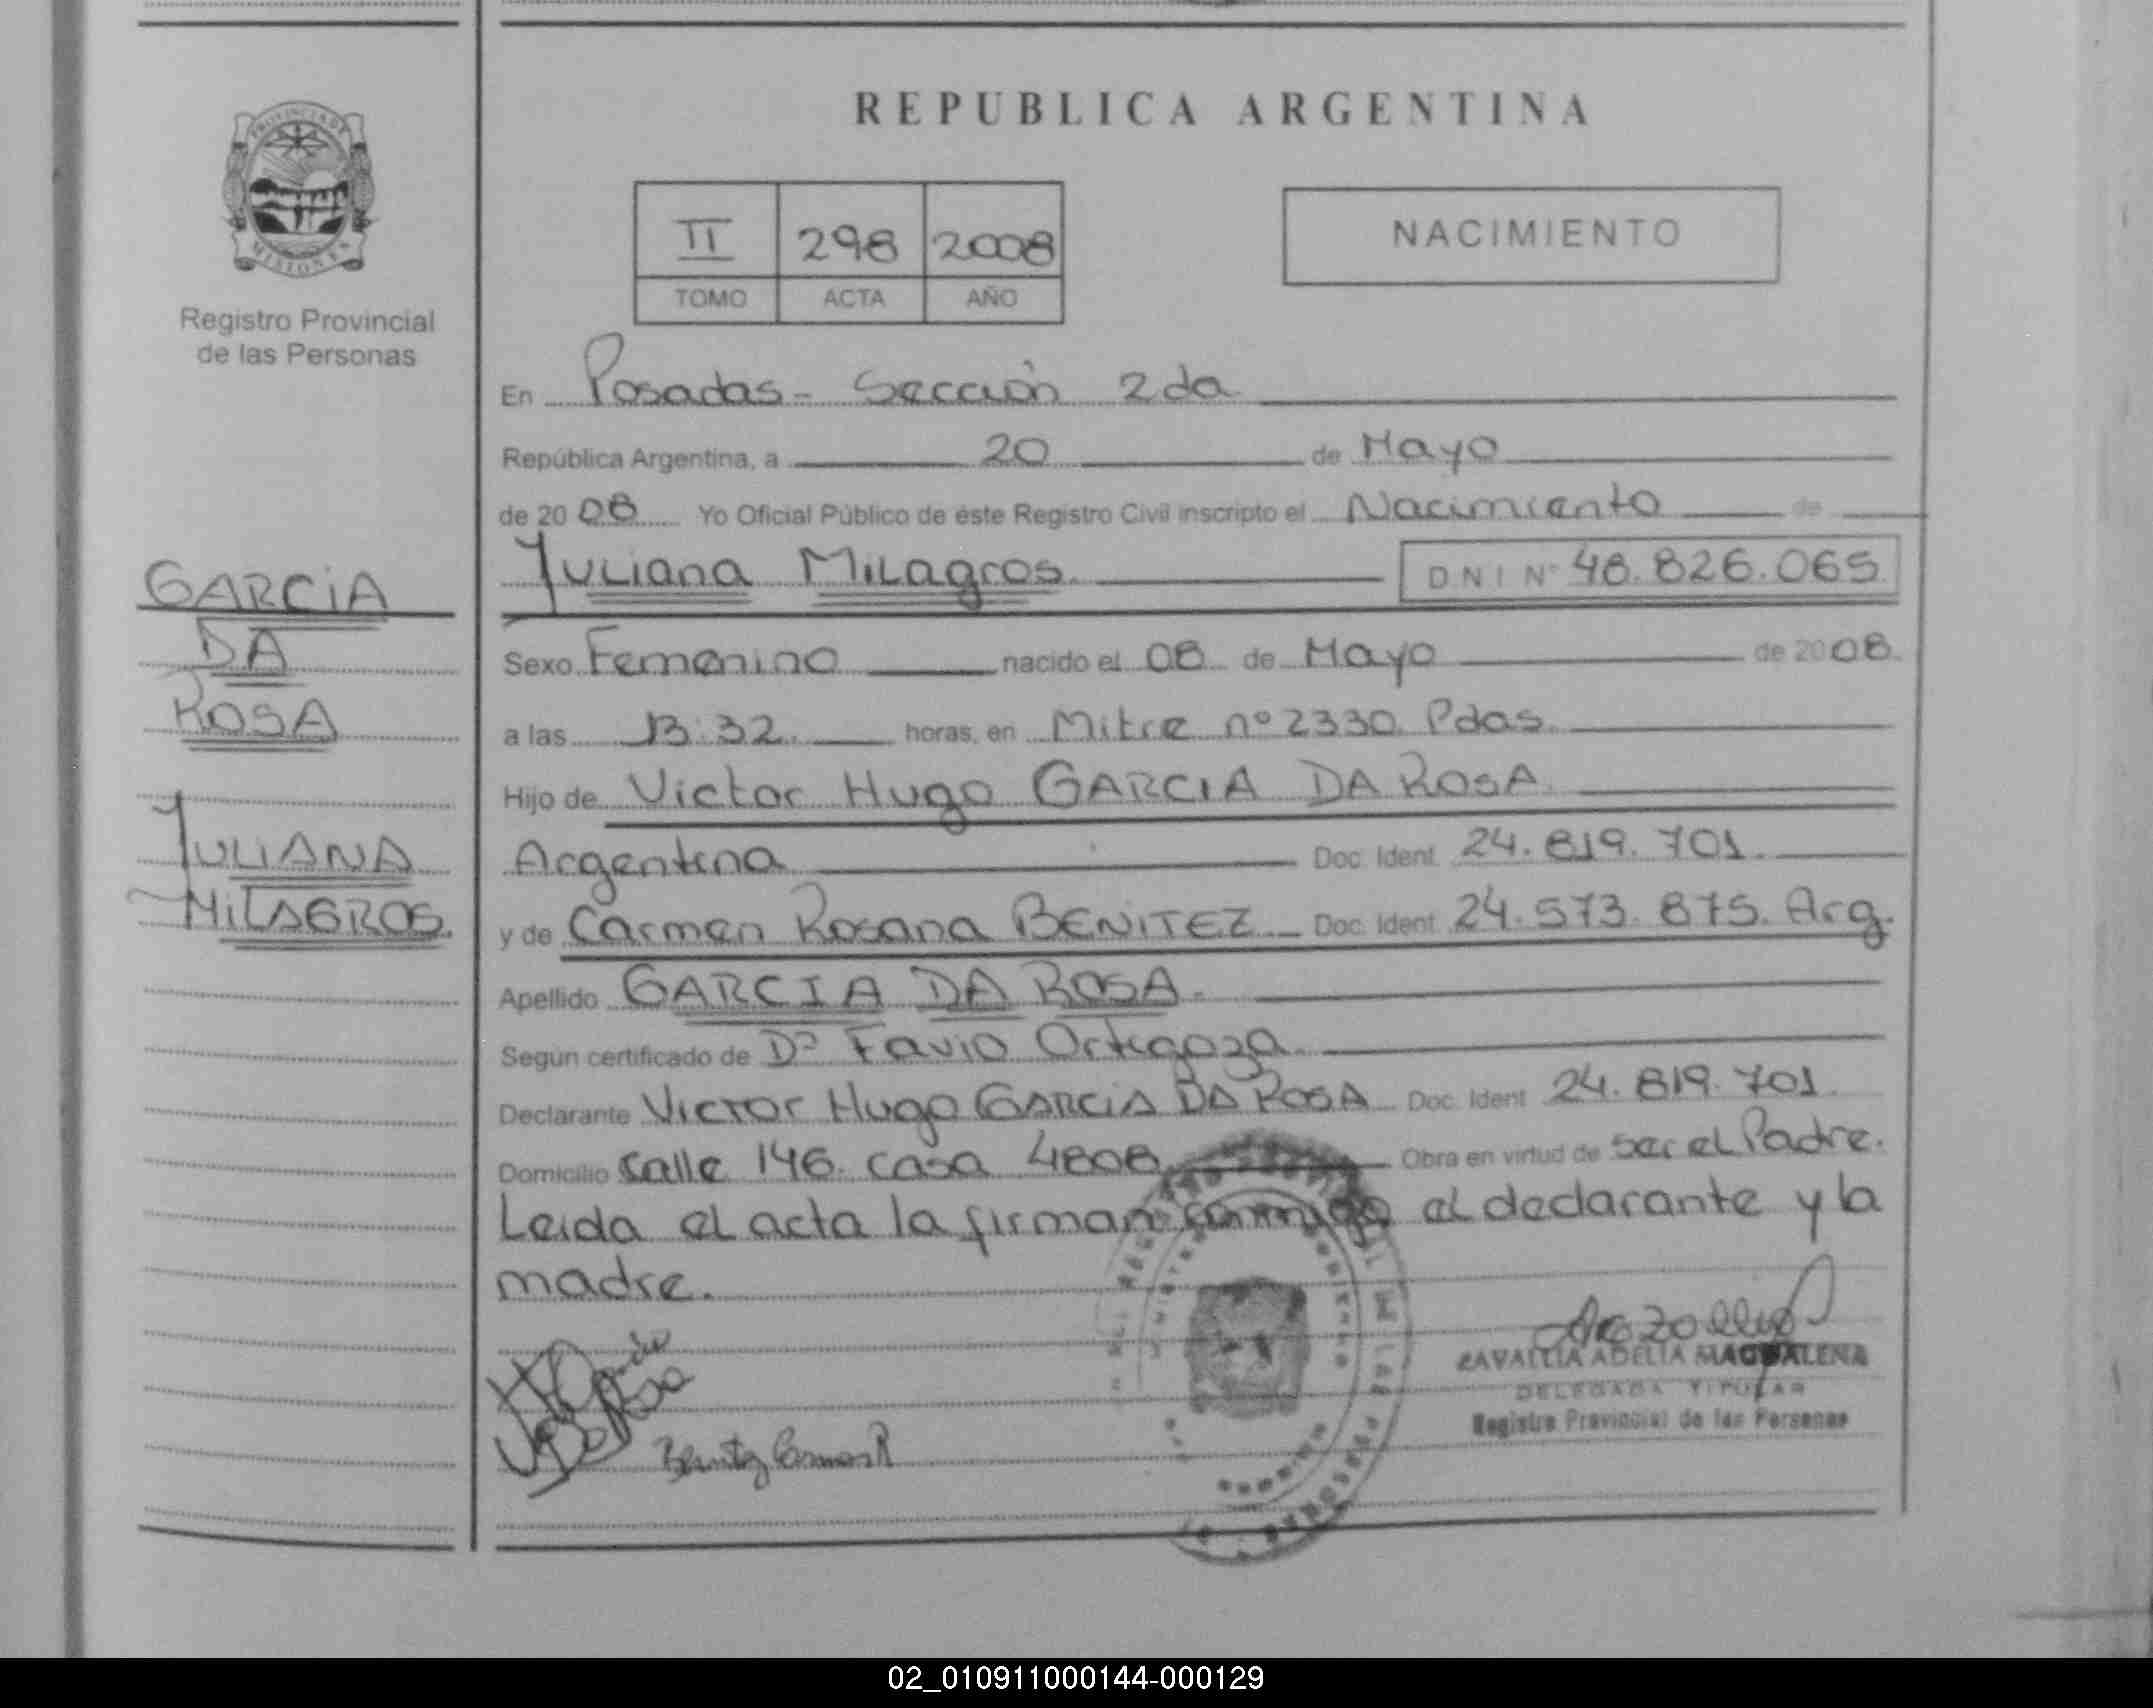 REPUBLICA ARGENTINA
PROVINCIA DE
MISIONES
Registro Provincial
de las Personas
II 298 2008
TOMO ACTA AÑO
NACIMIENTO
En Posadas - Sección 2da
República Argentina, a 20 de Mayo
de 20 08 Yo Oficial Público de éste Registro Civil inscripto el Nacimiento de
Juliana Milagros. DNI Nº 48.826.065
Sexo Femenino nacido el 08 de Mayo de 2008.
a las 13:32. horas, en Mitre nº 2330 Pdas.
Hijo de Victor Hugo GARCIA DA ROSA
Argentina Doc. Ident. 24.819.701.
y de Carmen Rosana BENITEZ Doc. Ident. 24.573.875. Arg.
Apellido GARCIA DA ROSA.
Según certificado de Dº Favio Ortegoza.
Declarante Victor Hugo GARCIA DA ROSA Doc. Ident. 24.819.701.
Domicilio calle 146. casa 4808 Obra en virtud de ser el Padre.
Leida el acta la firman conmigo el declarante y la
madre.
GARCIA
DA
ROSA
JULIANA
MILAGROS.
Benitez Carmen R
ZAVALLIA ADELIA MAGDALENA
DELEGADA TITULAR
Registro Provincial de las Personas
02_010911000144-000129